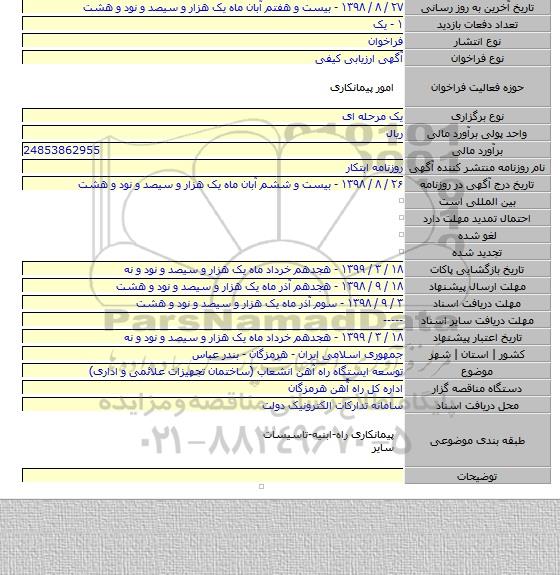 تاریخ آخرین به روز رسانی ۲۷ / ۸ / ۱۳۹۸ - بیست و هفتم آبان ماه یک هزار و سیصد و نود و هشت
تعداد دفعات بازدید ۱ - یک
نوع انتشار فراخوان
نوع فراخوان آگهی ارزیابی کیفی
حوزه فعالیت فراخوان امور پیمانکاری
نوع برگزاری یک مرحله ای
واحد پولی برآورد مالی ریال
برآورد مالی 24853862955
نام روزنامه منتشر کننده آگهی روزنامه ابتکار
تاریخ درج آگهی در روزنامه ۲۶ / ۸ / ۱۳۹۸ - بیست و ششم آبان ماه یک هزار و سیصد و نود و هشت
بین المللی است
احتمال تمدید مهلت دارد
لغو شده
تجدید شده
تاریخ بازگشایی پاکات ۱۸ / ۳ / ۱۳۹۹ - هجدهم خرداد ماه یک هزار و سیصد و نود و نه
مهلت ارسال پیشنهاد ۱۸ / ۹ / ۱۳۹۸ - هجدهم آذر ماه یک هزار و سیصد و نود و هشت
مهلت دریافت اسناد ۳ / ۹ / ۱۳۹۸ - سوم آذر ماه یک هزار و سیصد و نود و هشت
مهلت دریافت سایر اسناد -----
ParsNamadData
تاریخ اعتبار پیشنهاد ۱۸ / ۳ / ۱۳۹۹ - هجدهم خرداد ماه یک هزار و سیصد و نود و نه
کشور | استان | شهر جمهوری اسلامی ایران - هرمزگان - بندر عباس
موضوع توسعه ایستگاه راه آهن انشعاب (ساختمان تجهیزات علائمی و اداری)
دستگاه مناقصه گزار اداره کل راه آهن هرمزگان
محل دریافت اسناد سامانه تدارکات الکترونیک دولت
پایگاه اطلاع رسانی مناقصه و مزایده
طبقه بندی موضوعی پیمانکاری راه-ابنیه-تاسیسات
سایر
۰۲۱-۸۸۳۴۹۶۷۰-۵
توضیحات